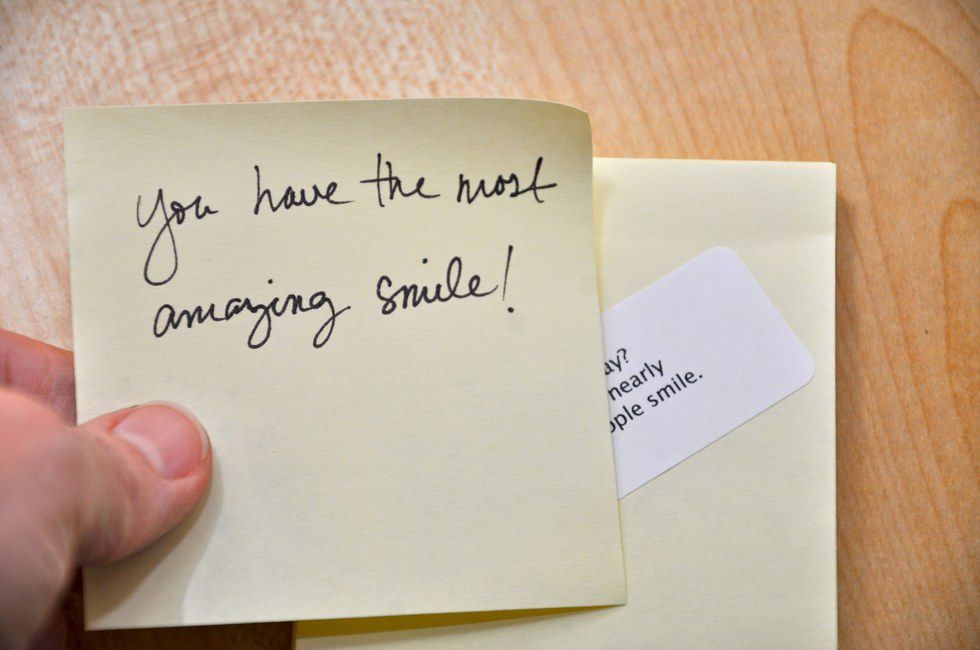 you have the most
amazing smile!
ay?
nearly
ople smile.